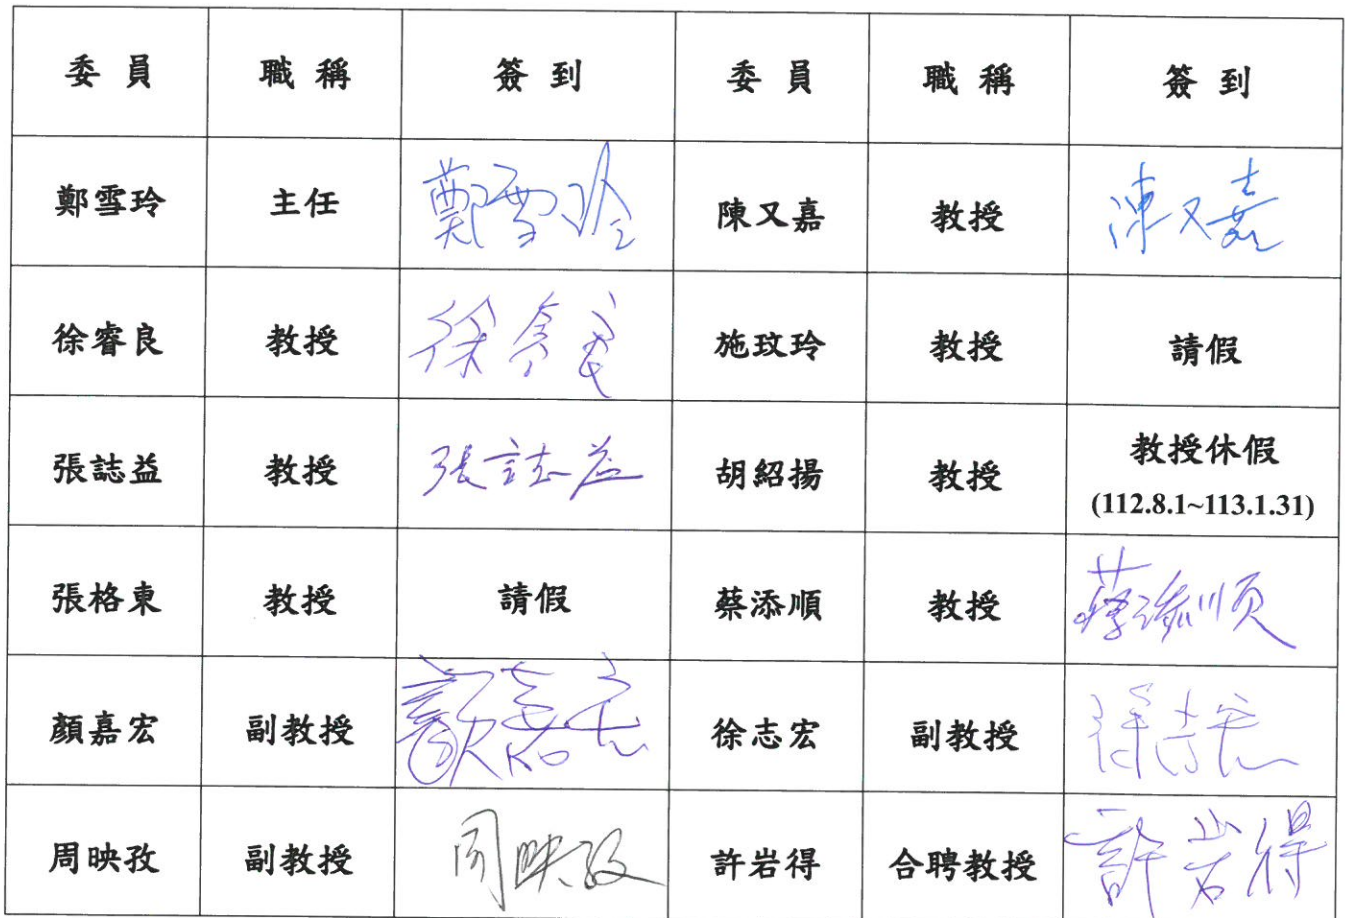 委員 職稱 簽到 委員 職稱 簽到
鄭雪玲 主任 鄭雪玲 陳又嘉 教授 陳又嘉
徐睿良 教授 徐睿良 施玟玲 教授 請假
張誌益 教授 張誌益 胡紹揚 教授 教授休假
(112.8.1~113.1.31)
張格東 教授 請假 蔡添順 教授 蔡添順
顏嘉宏 副教授 顏嘉宏 徐志宏 副教授 徐志宏
周映孜 副教授 周映孜 許岩得 合聘教授 許岩得